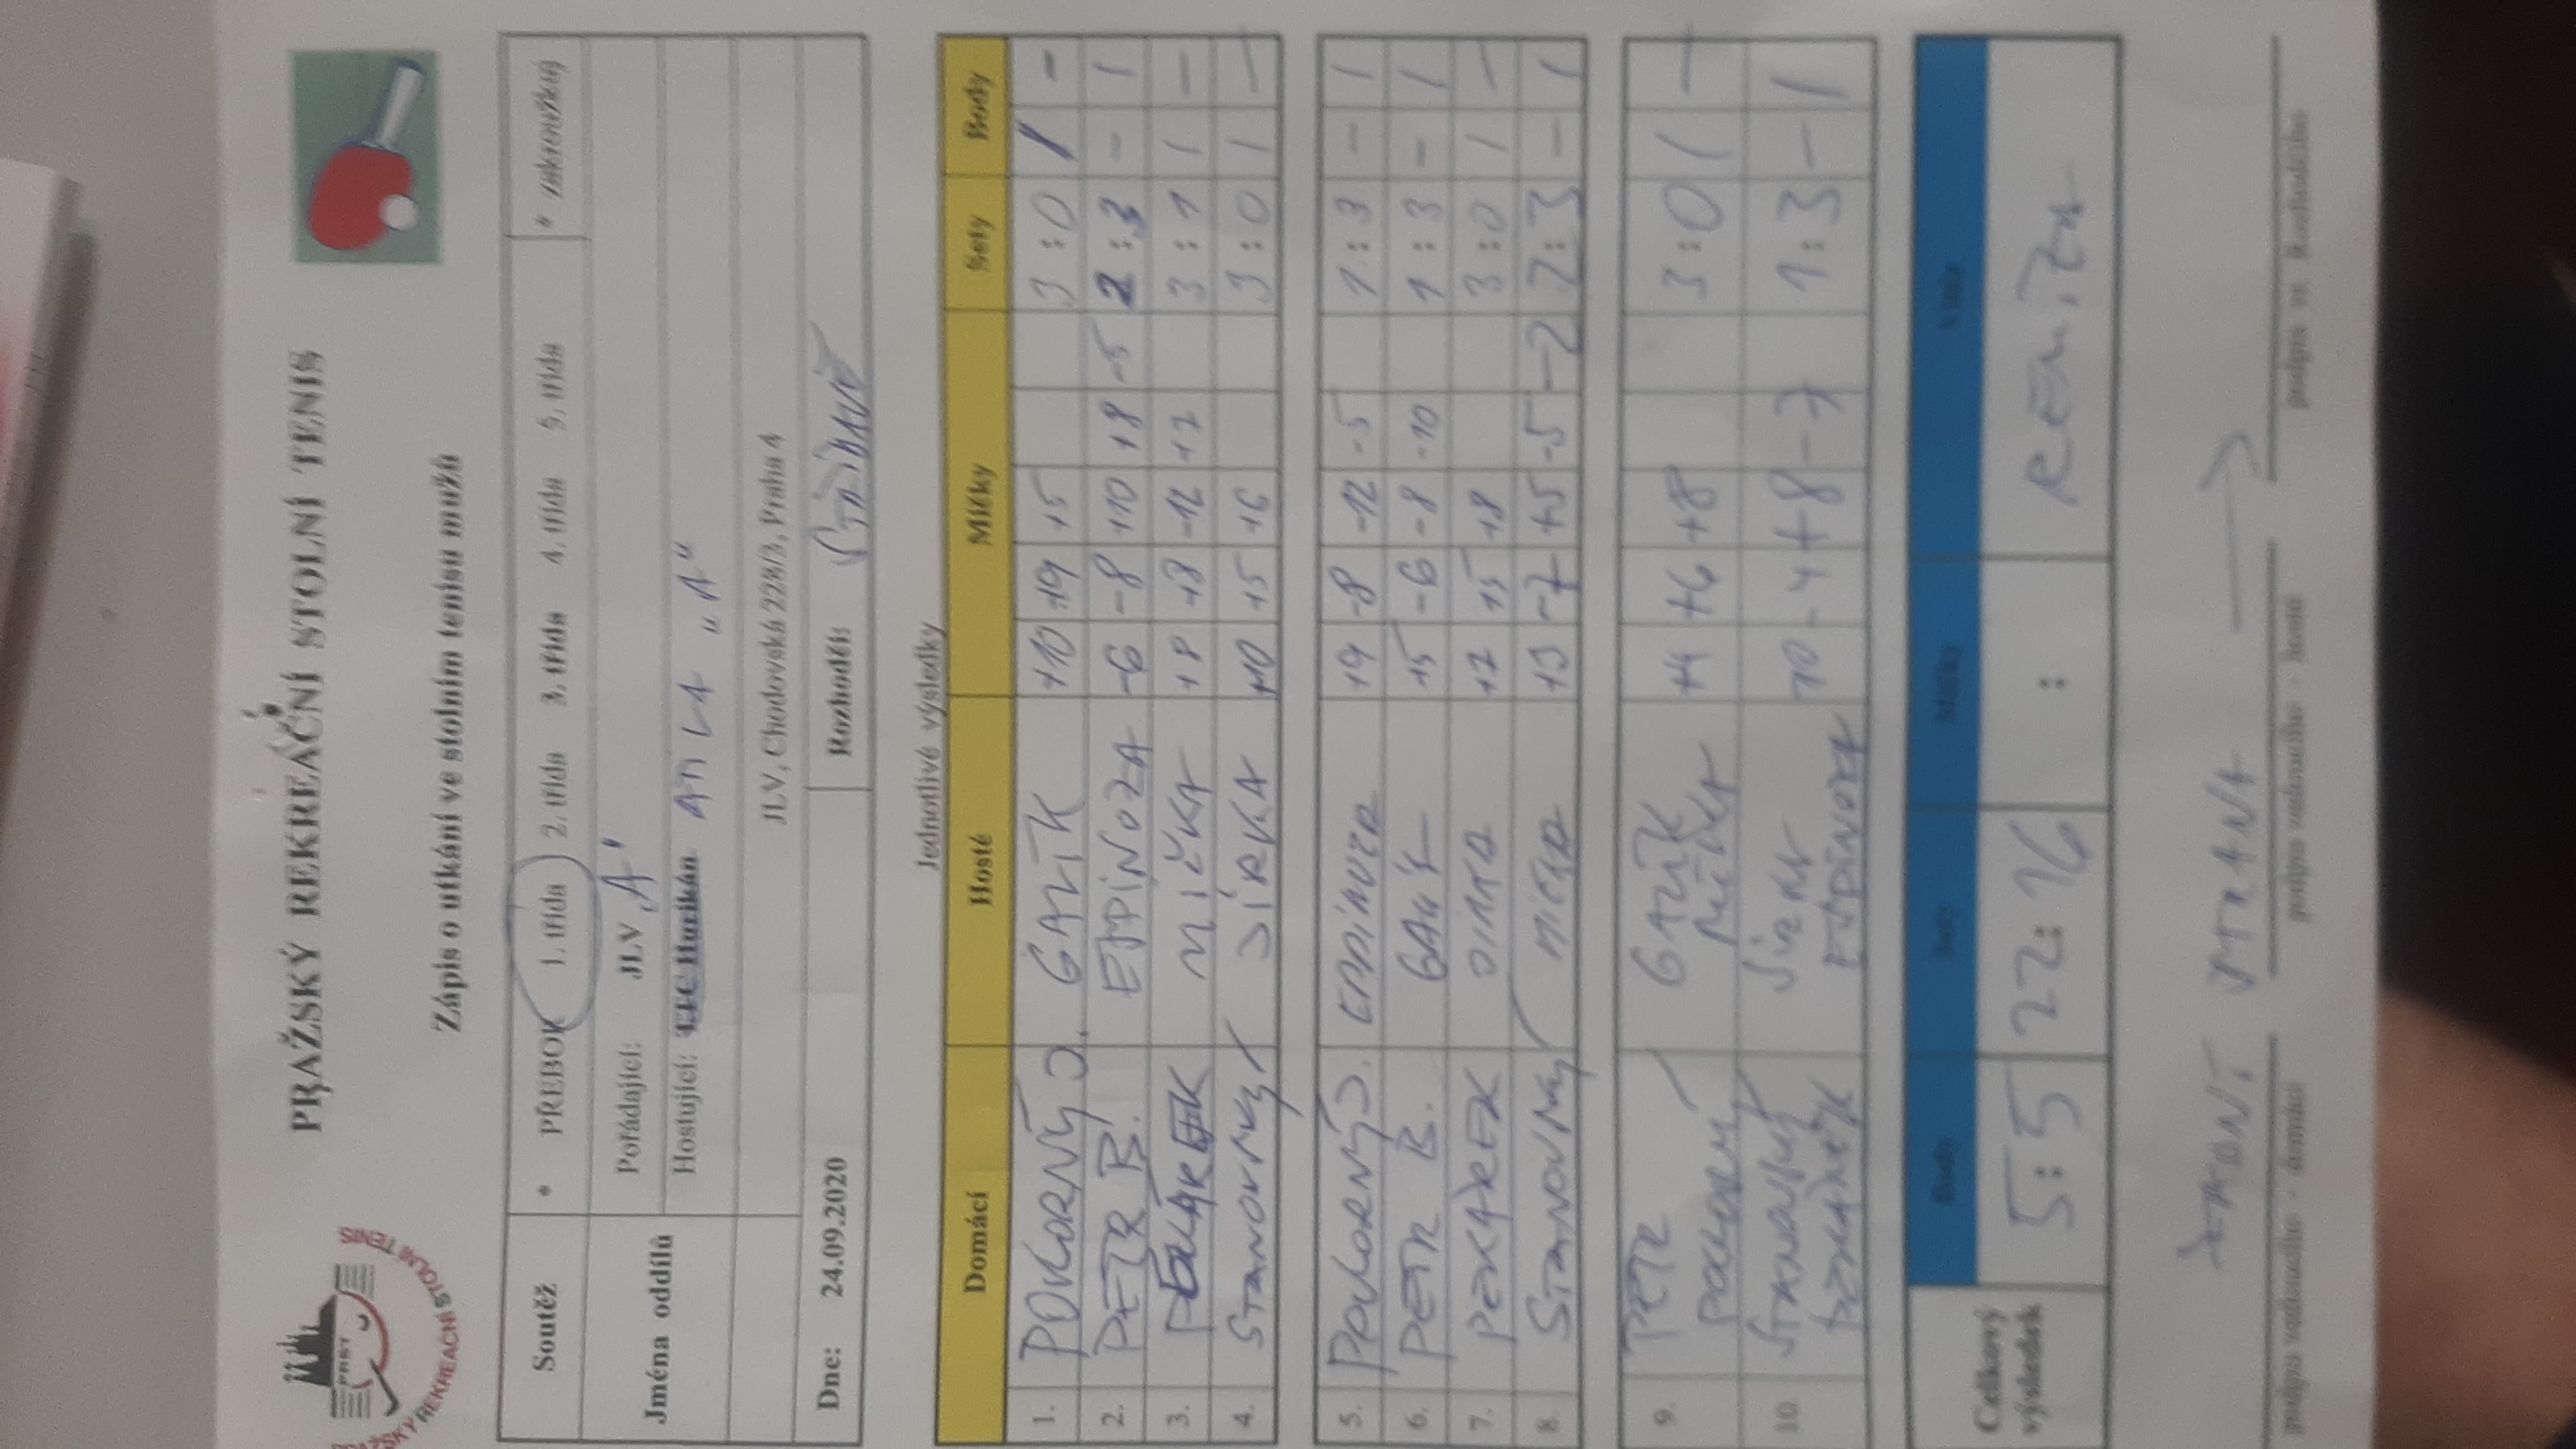 PRAŽSKÝ REKREAČNÍ STOLNÍ TENIS
Zápis o utkání ve stolním tenisu mužů
PRST
REKREAČNÍ STOLNÍ TENIS
Soutěž * PŘEBOR 1. třída 2. třída 3. třída 4. třída 5. třída * zakroužkuj
Jména oddílů
Pořádající: JLV „A"
Hostující: ATILA „A"
JLV, Chodovská 228/3, Praha 4
Dne: 24.09.2020 Rozhodčí:
Jednotlivé výsledky
Domácí Hosté Míčky Sety Body
1. POKORNÝ J. GALÍK +10 +9 +5 3:0 1 -
2. PETR B. ESPINOZA -6 -8 +10 +8 -5 2:3 - 1
3. PEKÁREK MIČKA +8 +8 -12 +7 3:1 1 -
4. STANOVSKÝ JIRKA +10 +5 +6 3:0 1 -
5. POKORNÝ J. ESPINOZA +9 -8 -12 -5 1:3 - 1
6. PETR B. GALÍK +5 -6 -8 -10 1:3 - 1
7. PEKÁREK JIRKA +7 +5 +8 3:0 1 -
8. STANOVSKÝ MIČKA +9 -7 +5 -5 -2 2:3 - 1
9. PETR GALÍK +4 +6 +8 3:0 1 -
POKORNÝ MIČKA
10. STANOVSKÝ JIRKA -10 -4 +8 -7 1:3 - 1
PEKÁREK ESPINOZA
Celkový výsledek Body Sety Míčky Vítěz
5:5 22:16 : REMÍZA
podpis vedoucího - domácí podpis vedoucího - hosté podpis vr. Rozhodčího